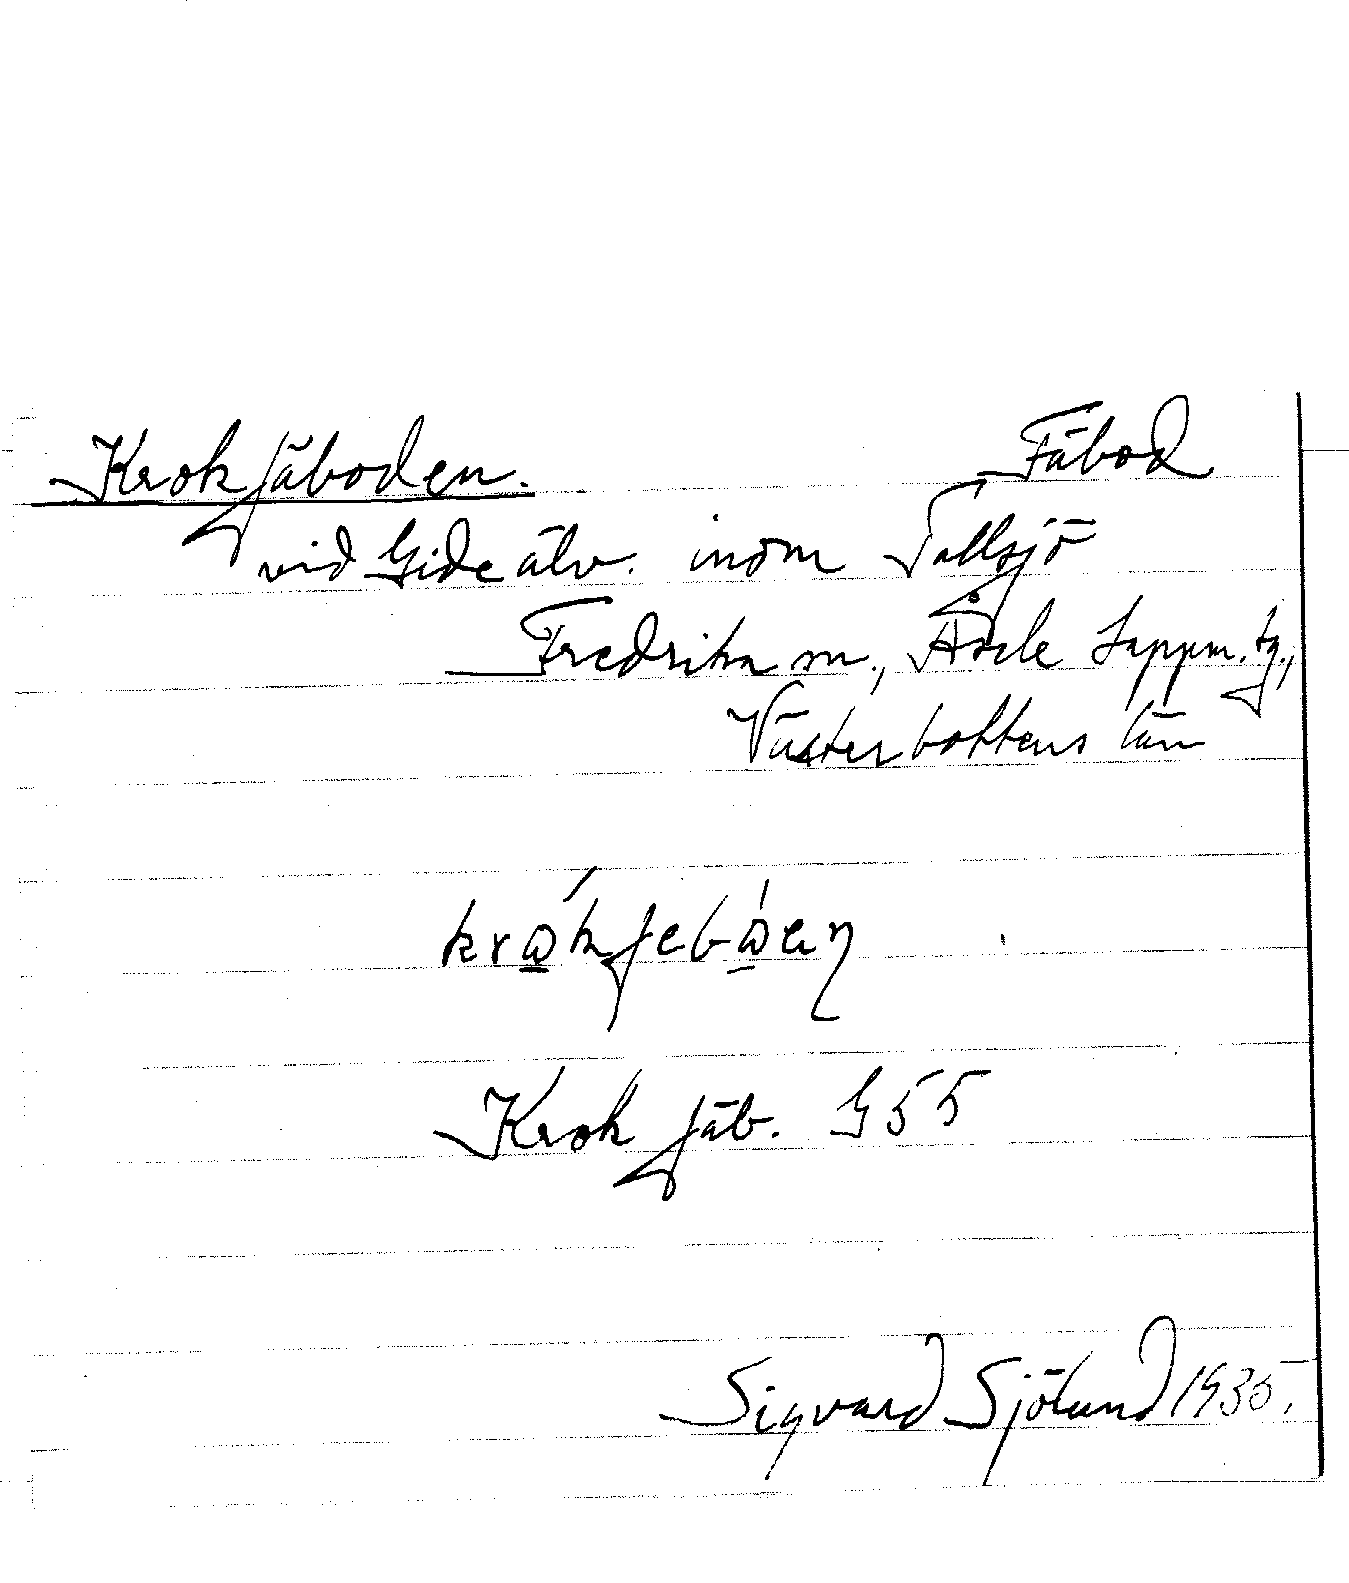 Krokfäboden. Fäbod
vid Gide älv. inom Tallsjö
Fredrika sn., Åsele Lappm. tg.,
Västerbottens län
Krok fäb. G55
Sigvard Sjölund 1935.